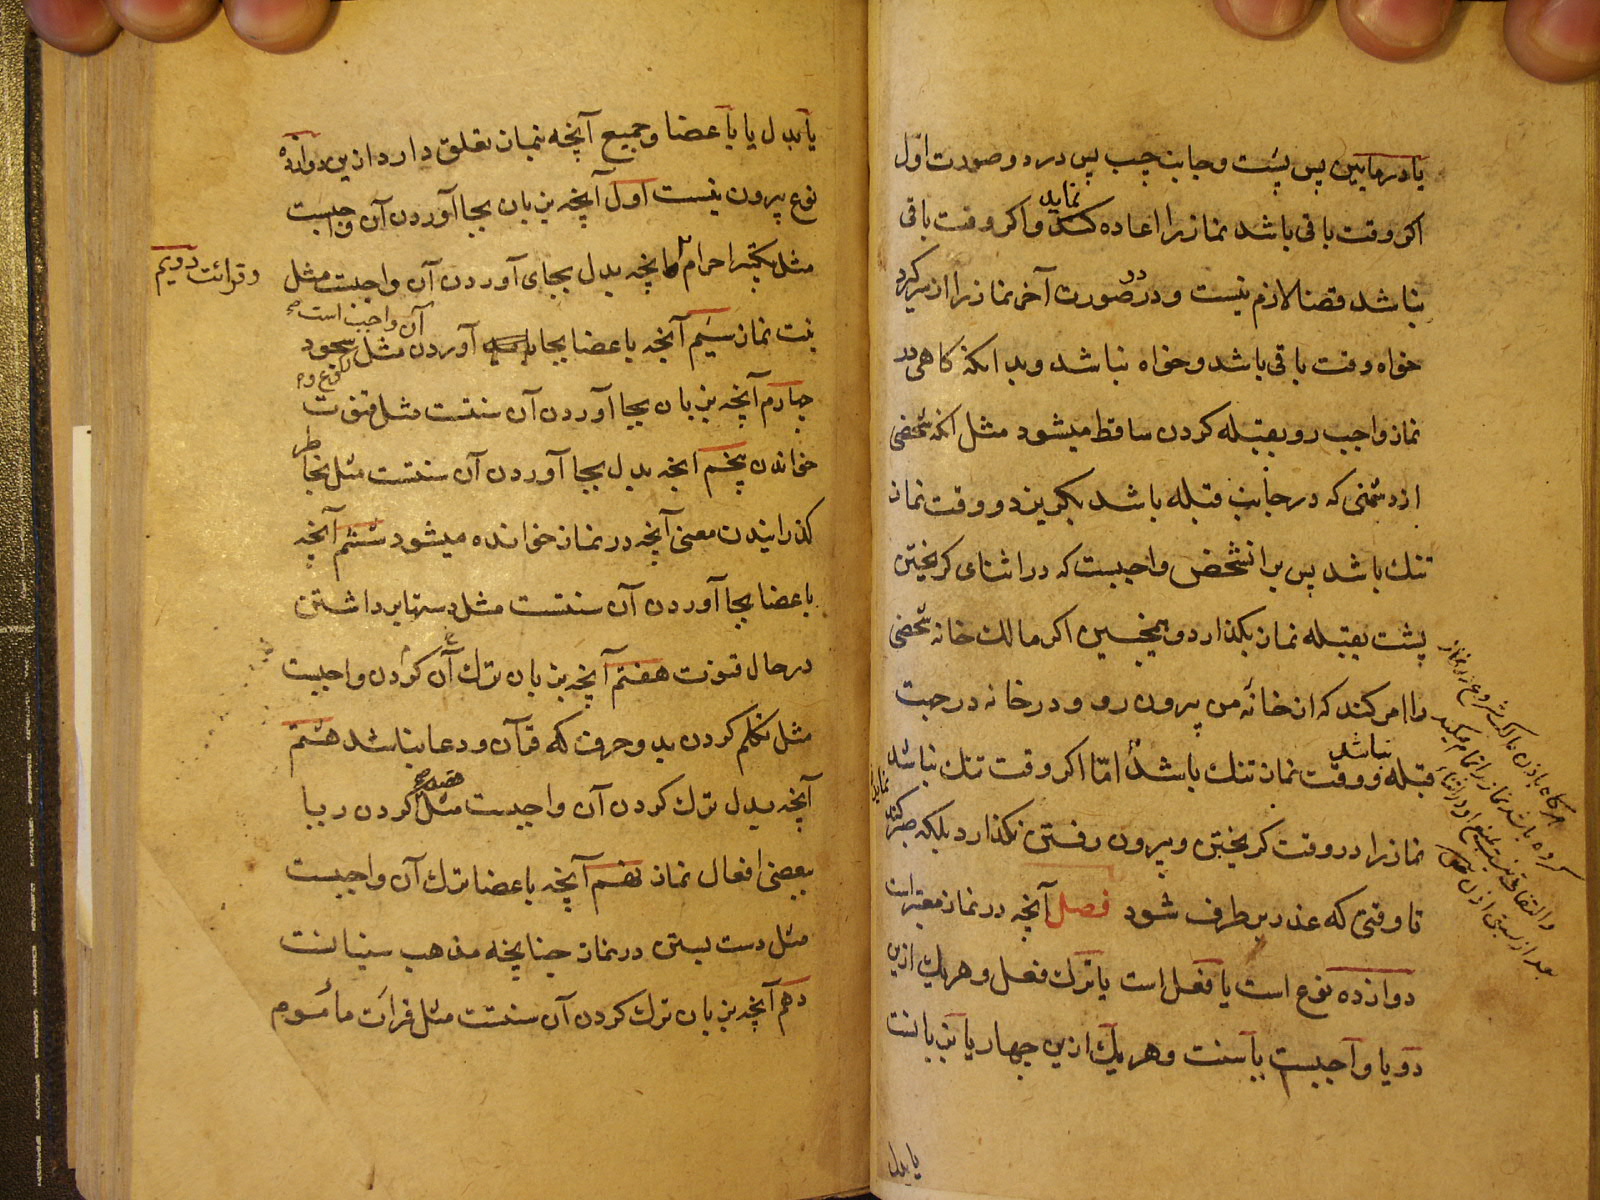 یا در مابین پس پشت و جانب چپ پس در دو صورت اول
اکر وقت باقی باشد نماز را اعاده کند نماید و اکر وقت باقی
نباشد قضا لازم نیست و در دو صورت آخر نماز را از سر کیرد
خواه وقت باقی باشد و خواه نباشد و بدانکه کاهی در
نماز واجب رو بقبله کردن ساقط میشود مثل آنکه شخصی
از دشمنی که در جانب قبله باشد بکریزد و وقت نماز
تنک باشد پس بر آنشخص واجبست که در اثنای کریختن
پشت بقبله نماز بکذارد و همچنین اکر مالک خانه شخصی
را امر کند که از خانهٔ من بیرون رو و در خانه در جهت
قبله نباشد و وقت نماز تنک باشد امّا اکر وقت تنک نباشد
نماز را در وقت کریختن و بیرون رفتن نکذارد بلکه صبر کند نماید
تا وقتی که عذر برطرف شود فصل آنچه در نماز معتبر است
دوازده نوع است یا فعل است یا ترک فعل و هر یک ازین
دو یا واجبست یا سنت و هر یک ازین چهار یا بزبانست
یا بدل
یا بدل یا باعضا و جمیع آنچه بنماز تعلق دارد ازین دوازده
نوع بیرون نیست اول آنچه بزبان بجا آوردن آن واجبست
مثل تکبیر احرام و قرائت دویم آنچه بدل بجای آوردن آن واجبست مثل
نیت نماز سیّم آنچه باعضا بجا آوردن آن واجب است مثل رکوع و سجود
چهارم آنچه بزبان بجا آوردن آن سنتست مثل قنوت
خواندن پنجم آنچه بدل بجا آوردن آن سنتست مثل بخاطر
کذرانیدن معنی آنچه در نماز خوانده میشود ششم آنچه
باعضا بجا آوردن آن سنتست مثل دستها برداشتن
در حال قنوت هفتم آنچه بزبان ترک آن کردن واجبست
مثل تکلم کردن بدو حرف که قرآن و دعا نباشد هشتم
آنچه بدل ترک کردن آن واجبست مثل قصد کردن ریا
ببعضی افعال نماز نهم آنچه باعضا ترک آن واجبست
مثل دست بستن در نماز چنانچه مذهب سنیانست
دهم آنچه بزبان ترک کردن آن سنتست مثل قرائت مأموم